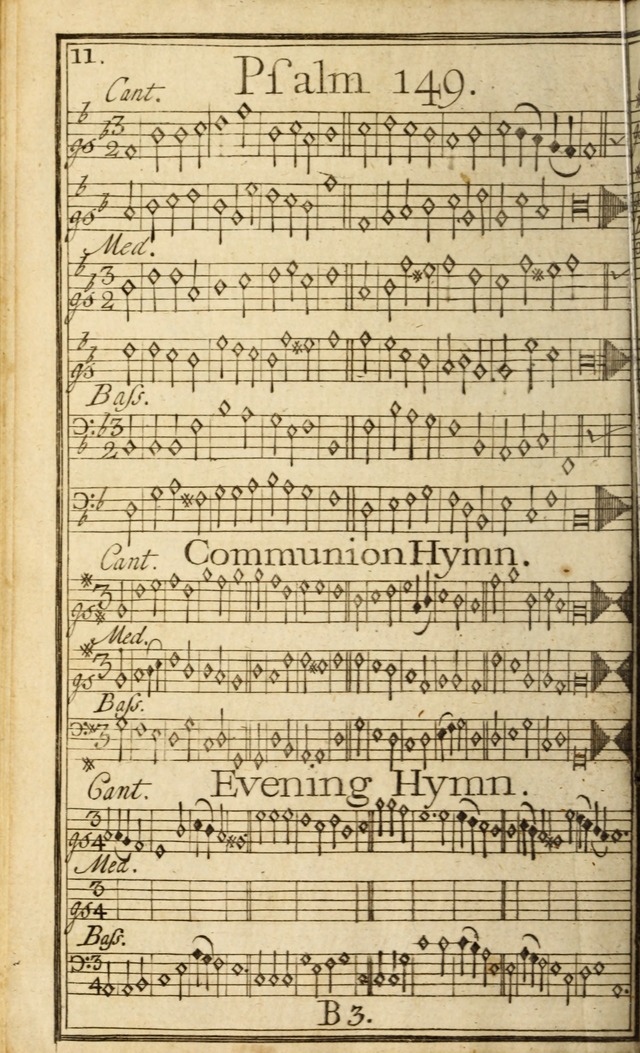 11.
Pſalm 149.
Cant.
Med.
Baſs.
Communion Hymn.
Cant.
Med.
Baſs.
Evening Hymn.
Cant.
Med.
Baſs.
B 3.